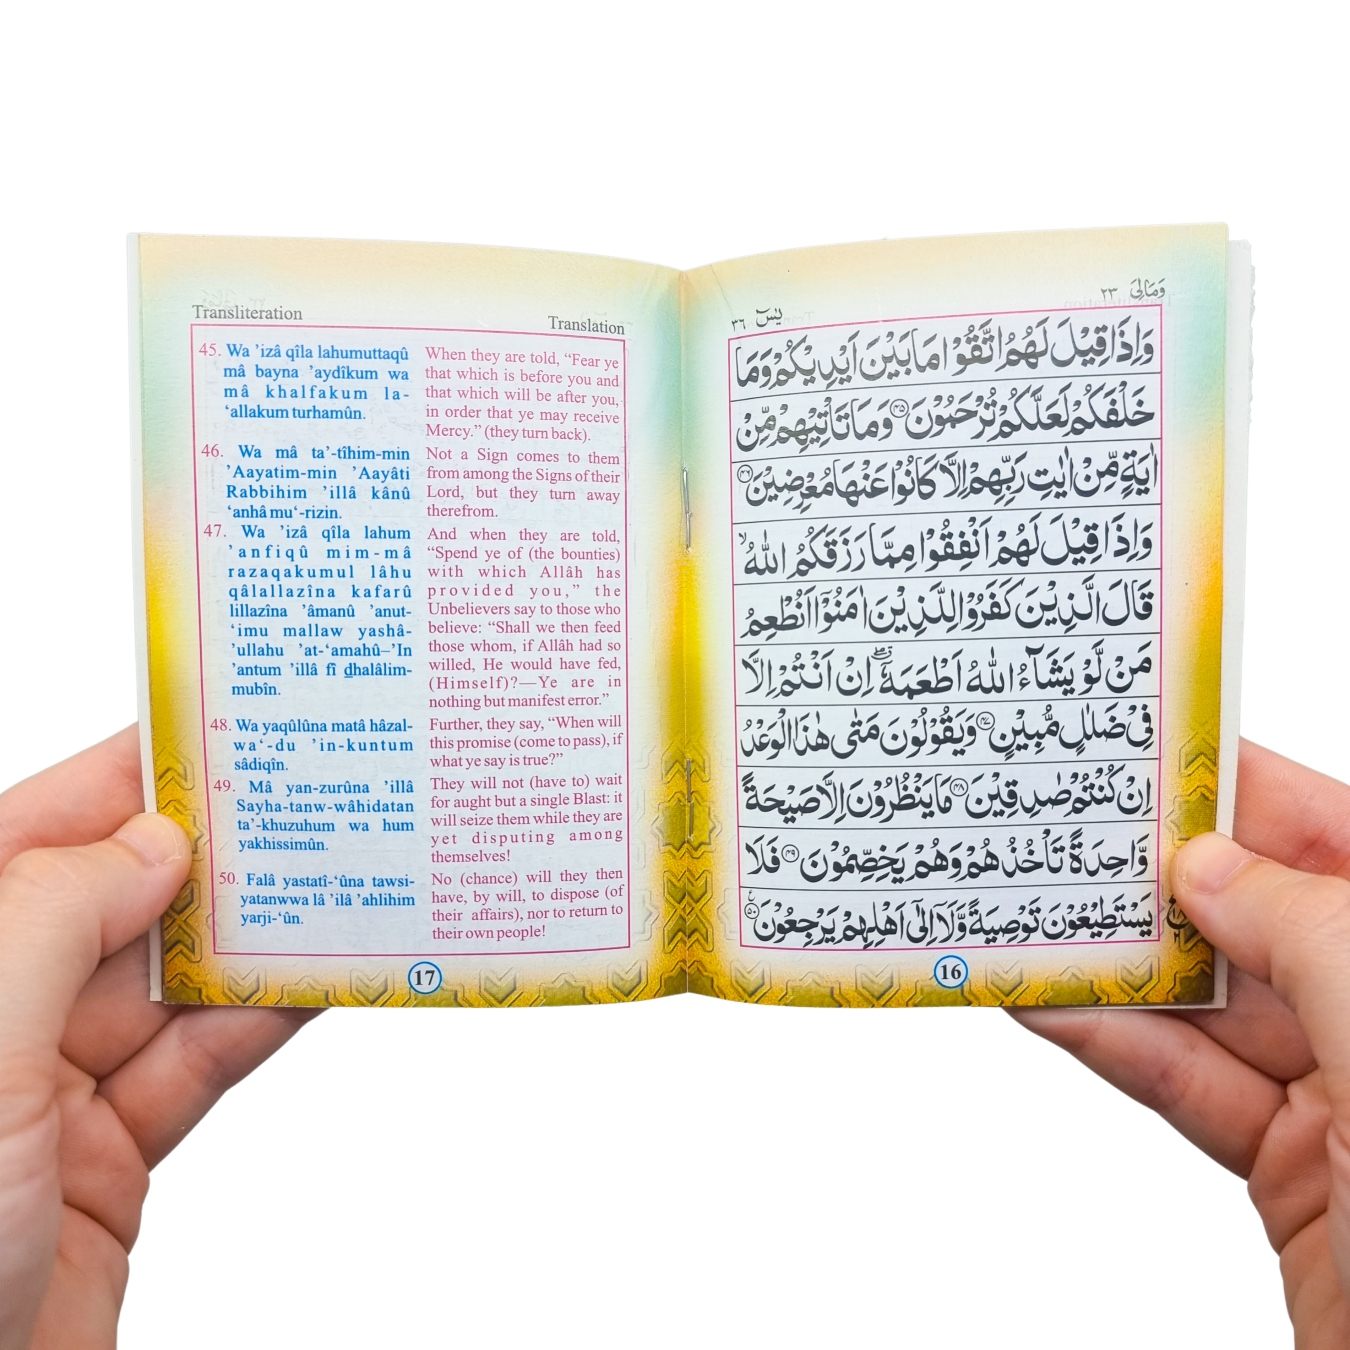 Transliteration
Translation
45. Wa ’izâ qîla lahumuttaqû
mâ bayna ’aydîkum wa
mâ khalfakum la-
‘allakum turhamûn.
When they are told, “Fear ye
that which is before you and
that which will be after you,
in order that ye may receive
Mercy.” (they turn back).
46. Wa mâ ta’-tîhim-min
’Aayatim-min ’Aayâti
Rabbihim ’illâ kânû
‘anhâ mu‘-rizin.
Not a Sign comes to them
from among the Signs of their
Lord, but they turn away
therefrom.
47. Wa ’izâ qîla lahum
’anfiqû mim-mâ
razaqakumul lâhu
qâlallazîna kafarû
lillazîna ’âmanû ’anut-
‘imu mallaw yashâ-
’ullahu ’at-‘amahû–’In
’antum ’illâ fî dhalâlim-
mubîn.
And when they are told,
“Spend ye of (the bounties)
with which Allâh has
provided you,” the
Unbelievers say to those who
believe: “Shall we then feed
those whom, if Allâh had so
willed, He would have fed,
(Himself)?—Ye are in
nothing but manifest error.”
48. Wa yaqûlûna matâ hâzal-
wa‘-du ’in-kuntum
sâdiqîn.
Further, they say, “When will
this promise (come to pass), if
what ye say is true?”
49. Mâ yan-zurûna ’illâ
Sayha-tanw-wâhidatan
ta’-khuzuhum wa hum
yakhissimûn.
They will not (have to) wait
for aught but a single Blast: it
will seize them while they are
yet disputing among
themselves!
50. Falâ yastatî-‘ûna tawsi-
yatanwwa lâ ’ilâ ’ahlihim
yarji-‘ûn.
No (chance) will they then
have, by will, to dispose (of
their affairs), nor to return to
their own people!
17
وَمَالِیَ ٢٣
یٰسٓ ٣٦
وَاِذَا قِيْلَ لَهُمُ اتَّقُوْا مَا بَيْنَ اَيْدِيْكُمْ وَمَا
خَلْفَكُمْ لَعَلَّكُمْ تُرْحَمُوْنَ ۴۵ وَمَا تَاْتِيْهِمْ مِّنْ
اٰيَةٍ مِّنْ اٰيٰتِ رَبِّهِمْ اِلَّا كَانُوْا عَنْهَا مُعْرِضِيْنَ ۴۶
وَاِذَا قِيْلَ لَهُمْ اَنْفِقُوْا مِمَّا رَزَقَكُمُ اللّٰهُ ۙ
قَالَ الَّذِيْنَ كَفَرُوْا لِلَّذِيْنَ اٰمَنُوْٓا اَنُطْعِمُ
مَنْ لَّوْ يَشَآءُ اللّٰهُ اَطْعَمَهٗٓ ۖ اِنْ اَنْتُمْ اِلَّا
فِيْ ضَلٰلٍ مُّبِيْنٍ ۴۷ وَيَقُوْلُوْنَ مَتٰى هٰذَا الْوَعْدُ
اِنْ كُنْتُمْ صٰدِقِيْنَ ۴۸ مَا يَنْظُرُوْنَ اِلَّا صَيْحَةً
وَّاحِدَةً تَاْخُذُهُمْ وَهُمْ يَخِصِّمُوْنَ ۴۹ فَلَا
يَسْتَطِيْعُوْنَ تَوْصِيَةً وَّلَآ اِلٰٓى اَهْلِهِمْ يَرْجِعُوْنَ ۵۰
16